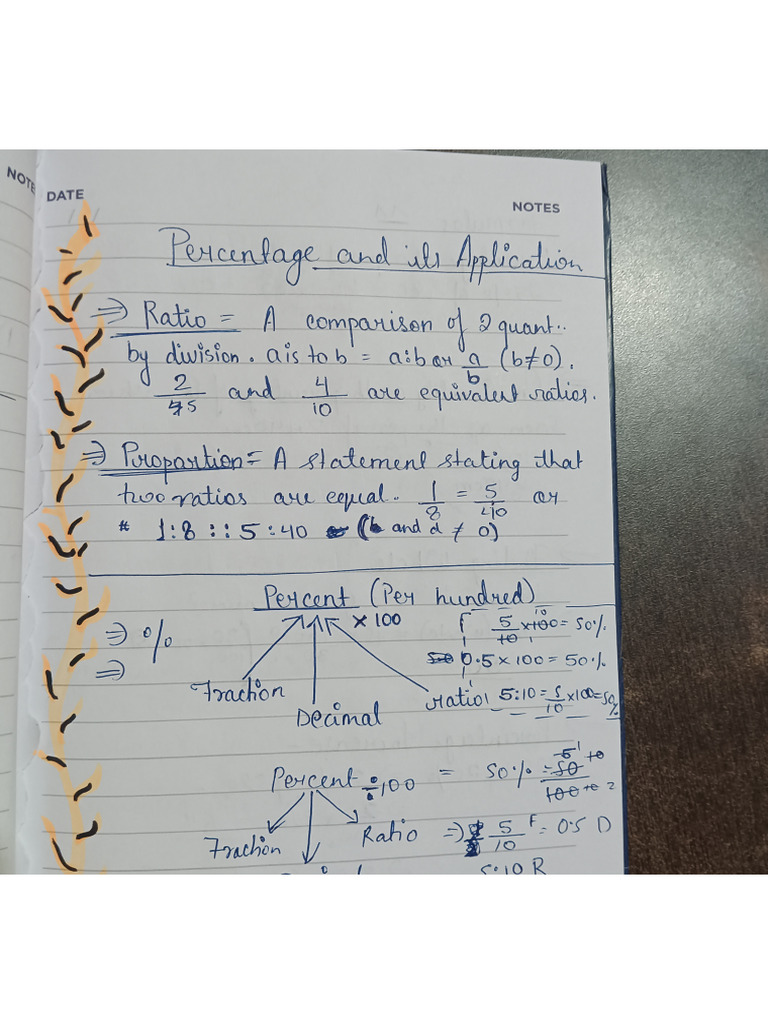 NOTE
DATE
NOTES
Percentage and its Application
⇒ Ratio = A comparison of 2 quant..
by division. a is to b = a:b or a/b (b≠0).
2/5 and 4/10 are equivalent ratios.
⇒ Proportion = A statement stating that
two ratios are equal. 1/8 = 5/40 or
* 1:8 :: 5:40 (b and d ≠ 0)
Percent (Per hundred)
⇒ %
× 100
5/10 × 100 = 50%
⇒
0.5 × 100 = 50%
Fraction
Decimal
ratio 5:10 = 5/10 × 100 = 50%
Percent ÷ 100 = 50% = 50/100
Fraction
Ratio ⇒ 5/10 F = 0.5 D
5:10 R